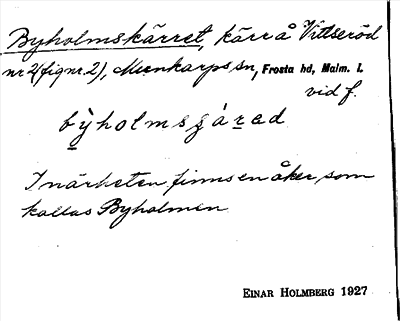 Byholmskärret, kärr å Vittseröd
nr 2 (fig nr. 2), Munkarps sn, Frosta hd, Malm. l.
vid f.
bỳholmsʒárad
I närheten finns en åker, som
kallas Byholmen
EINAR HOLMBERG 1927